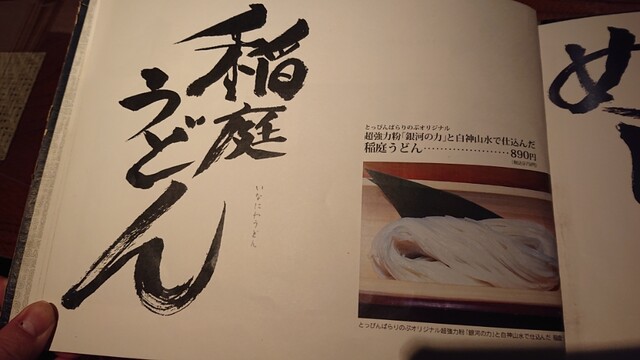 稲庭
うどん
いなにわうどん
とっぴんぱらりのぷオリジナル
超強力粉「銀河の力」と白神山水で仕込んだ
稲庭うどん・・・・・・・・・・・・・・・・・・・・890円
とっぴんぱらりのぷオリジナル超強力粉「銀河の力」と白神山水で仕込んだ